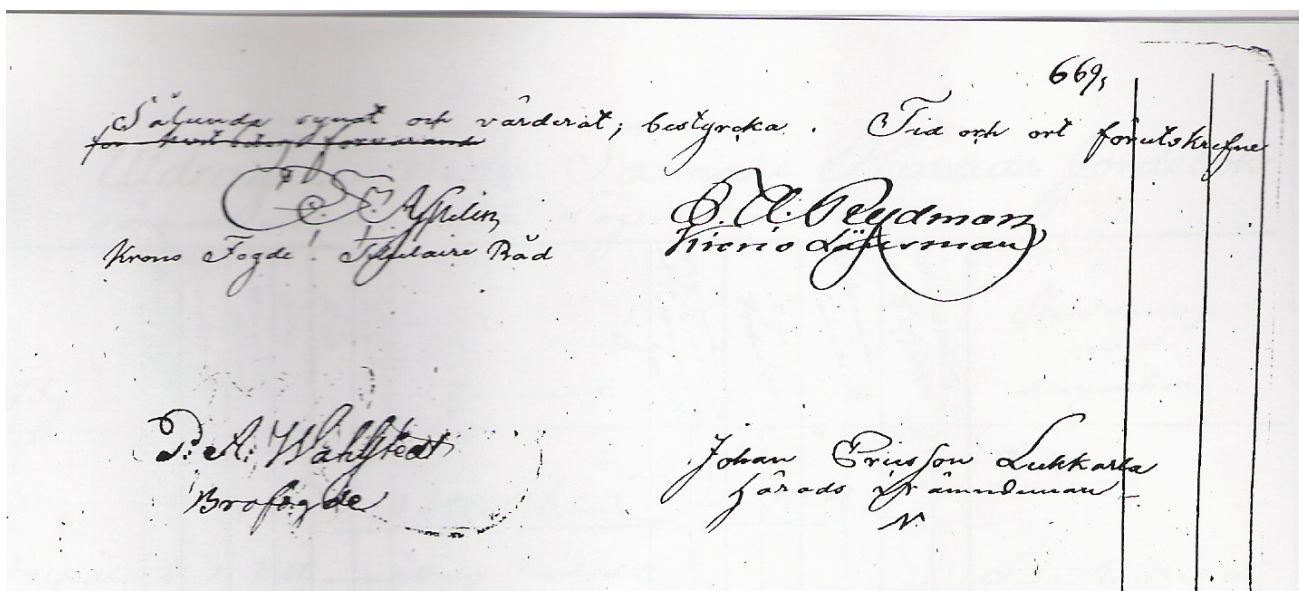 669,
Sålunda synat och värderat, bestyrcka. Tid och ort förutskrefne
för
Krono Fogde! Titulaire Råd
Krono Länsman
P. A. Wahlstedt
Brofogde
Johan Ericsson Lukkarla
Härads Nämndeman